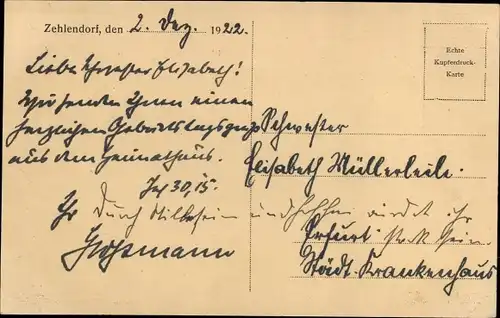 Zehlendorf, den 2. Dez. 1922.
Echte
Kupferdruck-
Karte
Liebe Schwester Elisabeth!
Wir senden Ihnen einen
herzlichen Geburtstagsgruß
aus dem Heimathaus.
Jes 30, 15.
Ihr
Durch Stillesein und Hoffen werdet ihr
stark sein
Schwester
Elisabeth Müllerleile.
Erfurt
Städt. Krankenhaus